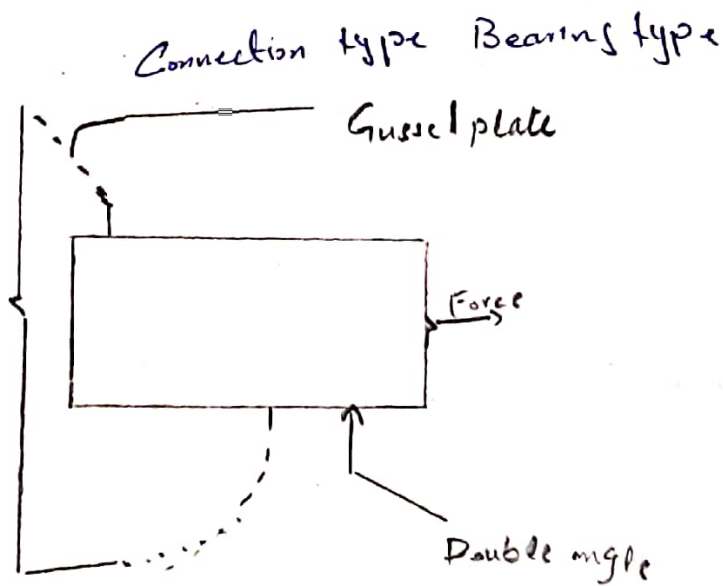 Connection type Bearing type
Gussel plate
Force
Double angle